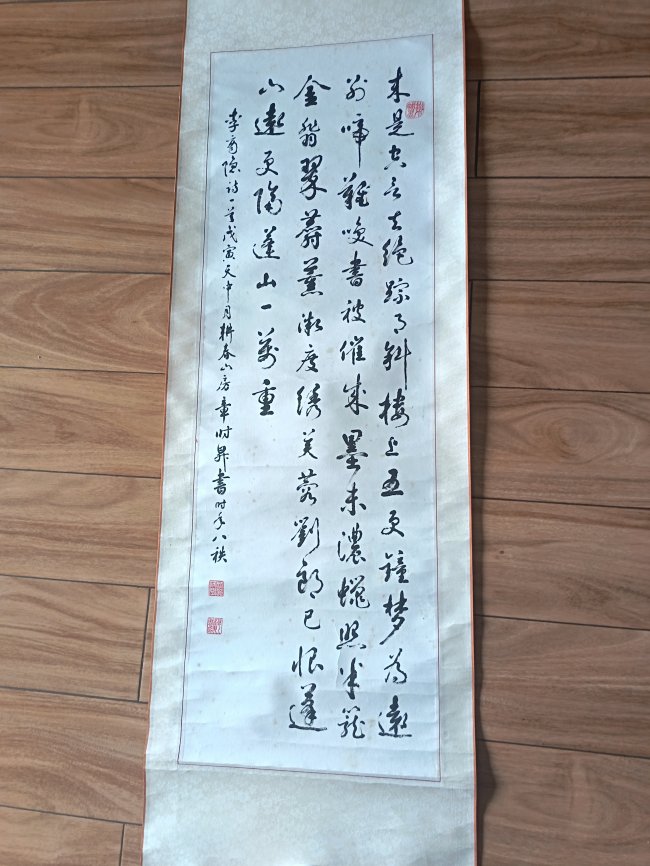 来是空言去絕踪月斜樓上五更鐘梦為遠
別啼難喚書被催成墨未濃蠟照半籠
金翡翠麝薰微度綉芙蓉劉郎已恨蓬
山遠更隔蓬山一萬重
李商隐詩一首戊寅天中月耕春山房章时昇書时年八秩